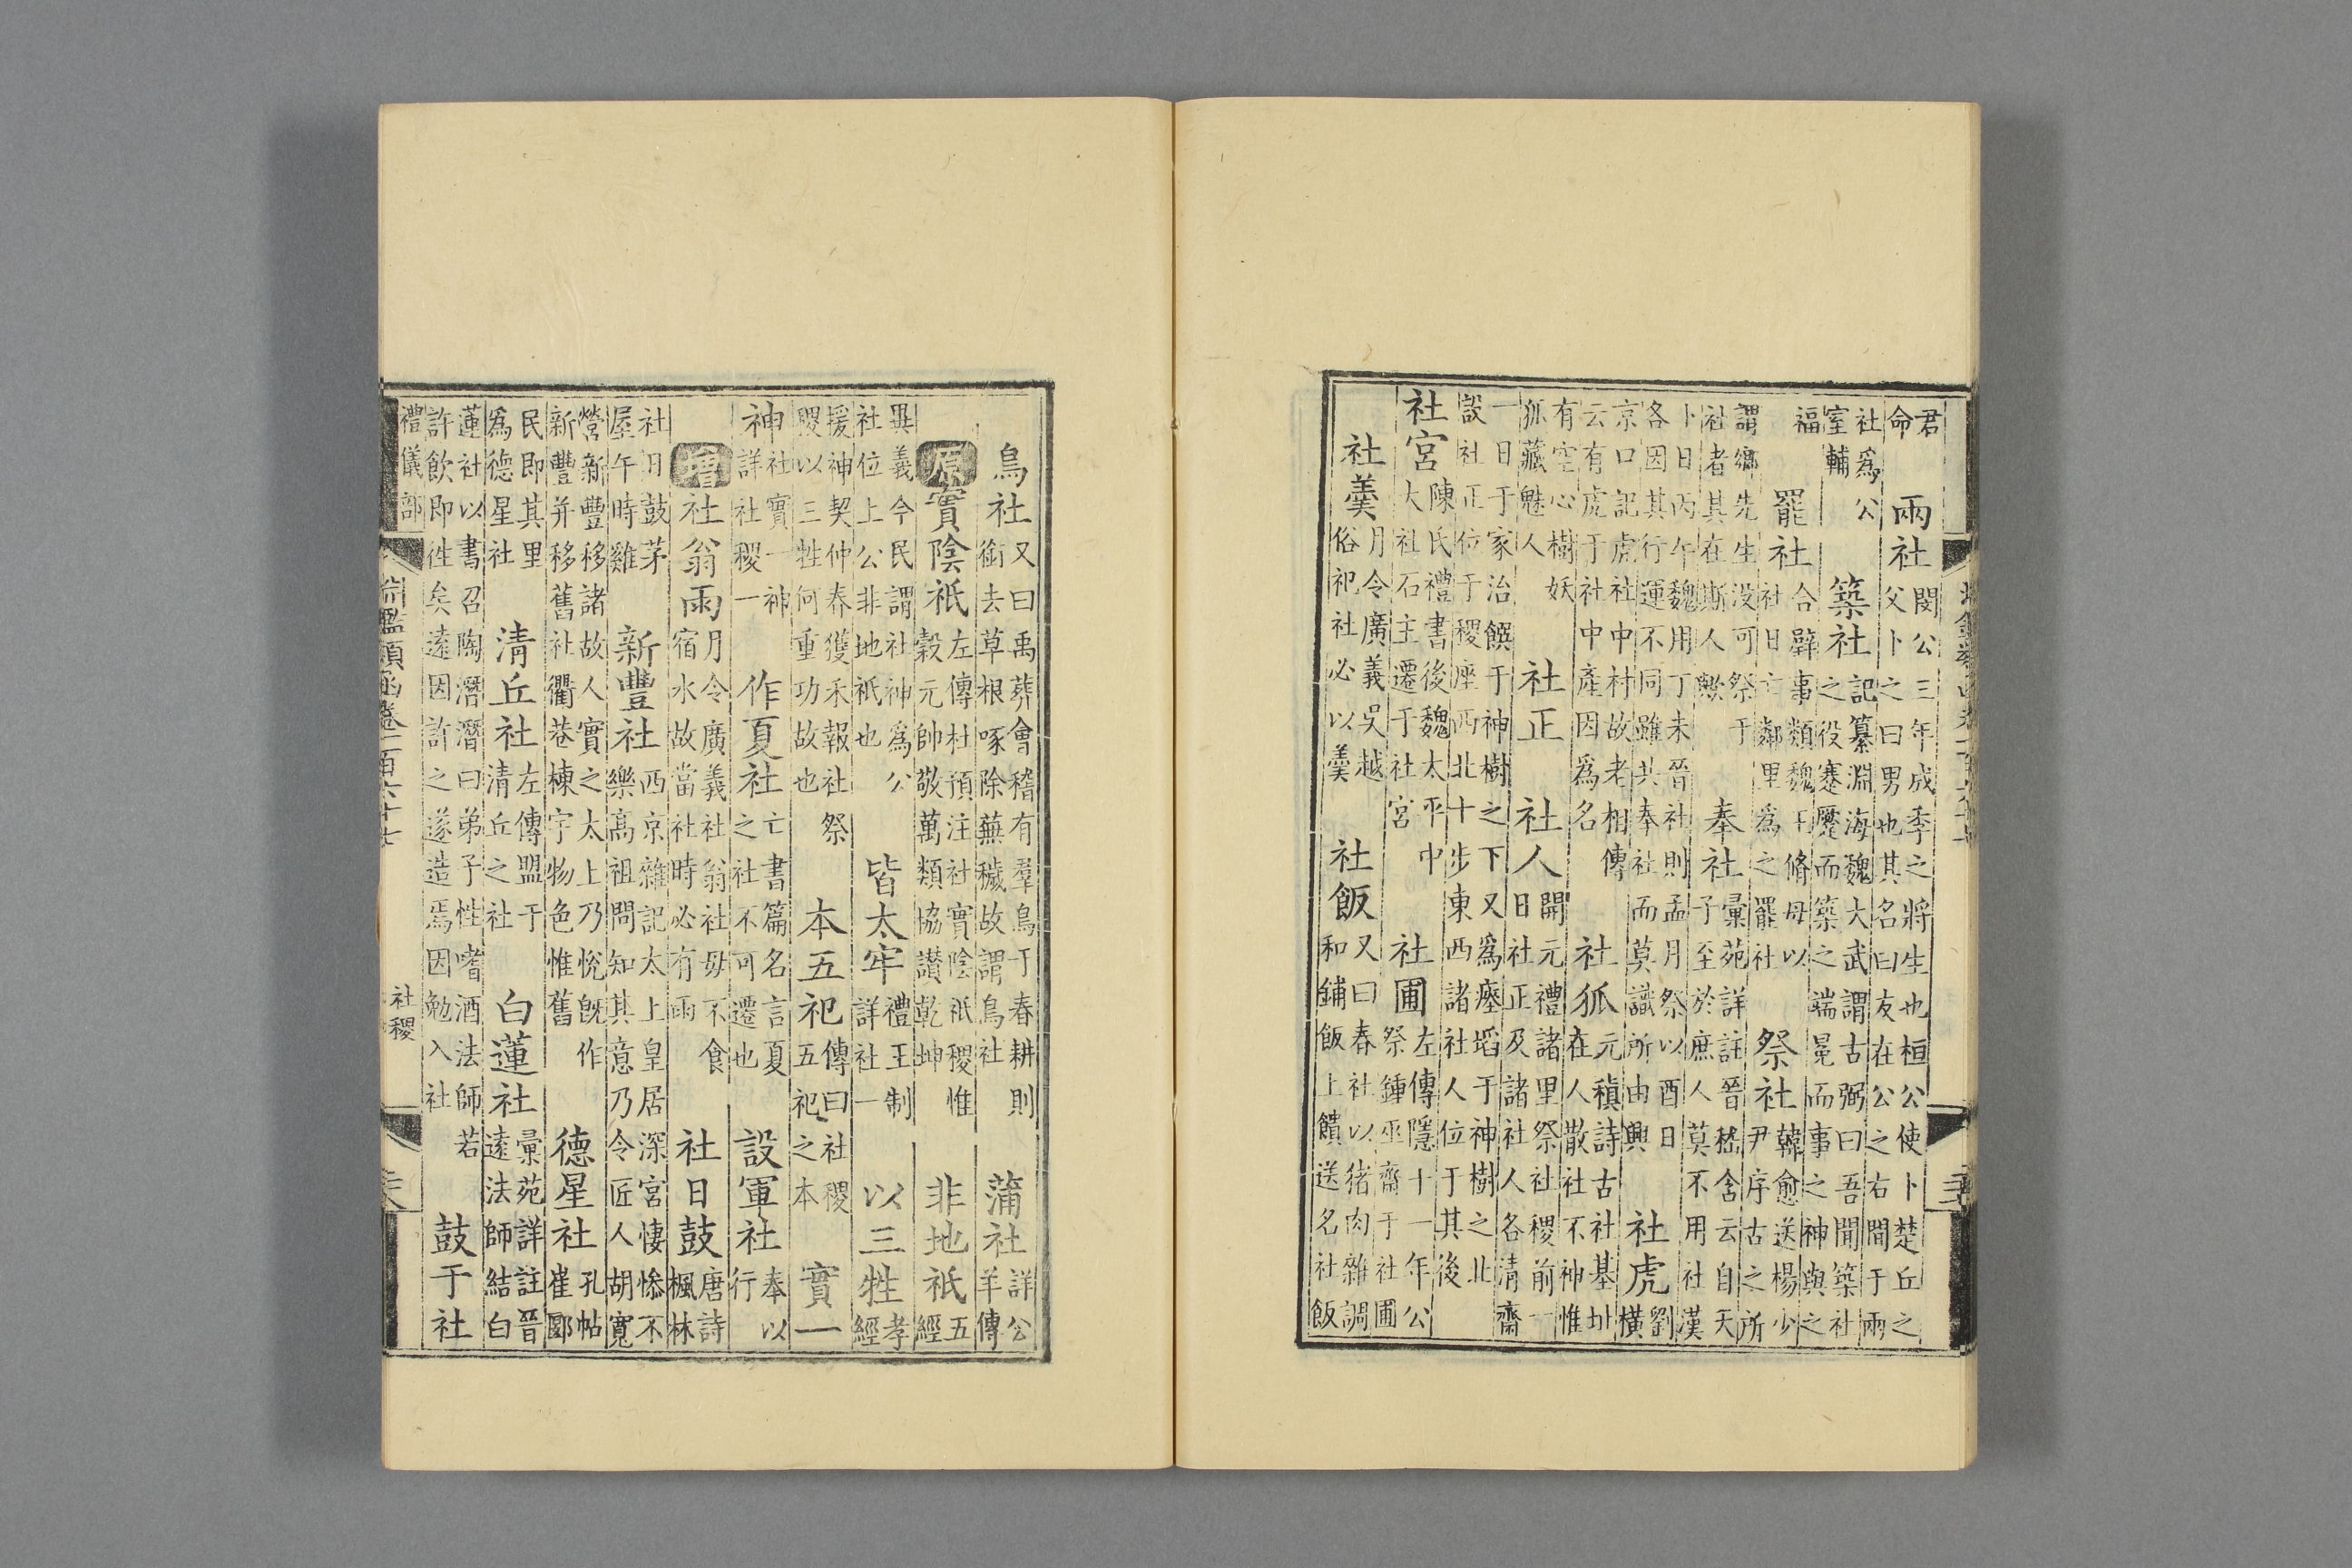 君
命
兩社
閔公三年成季之將生也桓公使卜楚丘之
父卜之曰男也其名曰友在公之右間于兩
社爲公
室輔
築社
記纂淵海魏大武謂古弼曰吾聞築社
之役蹇蹷而築之端冕而事之神與之
福
罷社
合璧事類魏王脩母以
社日亡鄰里爲之罷社
祭社
韓愈送楊少
尹序古之所
謂鄉先生没可祭于
社者其在斯人歟
奉社
彙苑詳註晉嵇含云自天
子至於庶人莫不用社漢
卜日丙午魏用丁未晉社則孟月祭以酉日
各因其行運不同雖共奉社而莫識所由興
社虎
劉
橫
京口記虎社中村故老相傳
云有虎于社中產因爲名
社狐
元稹詩古社基址
在人散社不神惟
有空心樹妖
狐藏魅人
社正
社人
開元禮諸里祭社稷前一
日社正及諸社人各清齋
一日于家治饌于神樹之下又爲瘞埳于神樹之北
設社正位于稷座西北十步東西諸社人位于其後
社宮
陳氏禮書後魏太平中
大社石主遷于社宮
社圃
左傳隱十一年公
祭鍾巫齋于社圃
社羹
月令廣義吳越
俗祀社必以羹
社飯
又曰春社以猪肉雜調
和鋪飯上饋送名社飯
鳥社
又曰禹葬會稽有羣鳥于春耕則
銜去草根啄除蕪穢故謂鳥社
蒲社
詳公
羊傳
原
實陰祇
左傳杜預注社實陰祇稷惟
穀元帥敬萬類協讃乾坤
非地祇
五
經
異義今民謂社神爲公
社位上公非地祇也
皆太牢
禮王制
詳社一
以三牲
孝
經
援神契仲春獲禾報社祭
稷以三牲何重功故也
本五祀
傳曰社稷
五祀之本
實一
神
社實一神
詳社稷一
作夏社
亡書篇名言夏
之社不可遷也
設軍社
奉以
行
增
社翁雨
月令廣義社翁社母不食
宿水故當社時必有雨
社日鼓
唐詩
楓林
社日鼓茅
屋午時雞
新豐社
西京雜記太上皇居深宮悽慘不
樂高祖問知其意乃令匠人胡寬
營新豐移諸故人實之太上乃悅既作
新豐并移舊社衢巷棟宇物色惟舊
德星社
孔帖
崔郾
民即其里
爲德星社
清丘社
左傳盟于
清丘之社
白蓮社
彙苑詳註晉
遠法師結白
蓮社以書召陶潛潛曰弟子性嗜酒法師若
許飲即徃矣遠因許之遂造焉因勉入社
鼓于社
禮儀部
鑑類函卷一百六十七
社稷